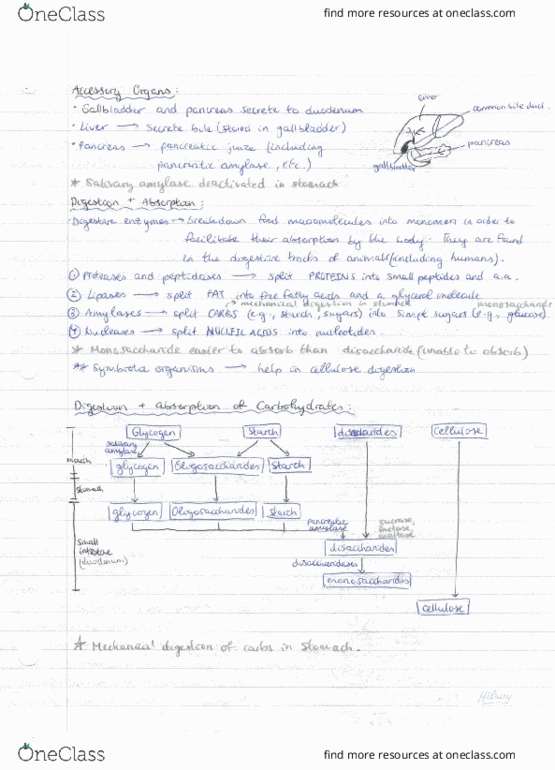 OneClass
find more resources at oneclass.com
Accessory Organs:
• Gallbladder and pancreas secrete to duodenum
• Liver → Secrete bile (stored in gallbladder)
• Pancreas → pancreatic juice (including
pancreatic amylase, etc.)
liver
common bile duct.
pancreas
gallbladder
* Salivary amylase deactivated in stomach
Digestion + Absorption:
• Digestive enzymes → breakdown food macromolecules into monomers in order to
facilitate their absorption by the body. They are found
in the digestive tracks of animals (including humans).
① Proteases and peptidases → split PROTEINS into small peptides and a.a.
② Lipases → split FAT into free fatty acids and a glycerol molecule
→ mechanical digestion in stomach
monosaccharide
③ Amylases → split CARBS (e.g., starch, sugars) into simple sugars (e.g., glucose)
④ Nucleases → split NUCLEIC ACIDS into nucleotides.
* Monosaccharide easier to absorb than disaccharide (unable to absorb)
** Symbiotic organisms → help in cellulose digestion
Digestion + absorption of Carbohydrates:
Glycogen Starch disaccharides Cellulose
salivary
amylase
mouth
glycogen Oligosaccharides Starch
stomach
glycogen Oligosaccharides starch
small
intestine
(duodenum)
pancreatic
amylase
sucrase,
lactase
maltase
disaccharides
disaccharidases
monosaccharides
cellulose
* Mechanical digestion of carbs in stomach.
OneClass
find more resources at oneclass.com